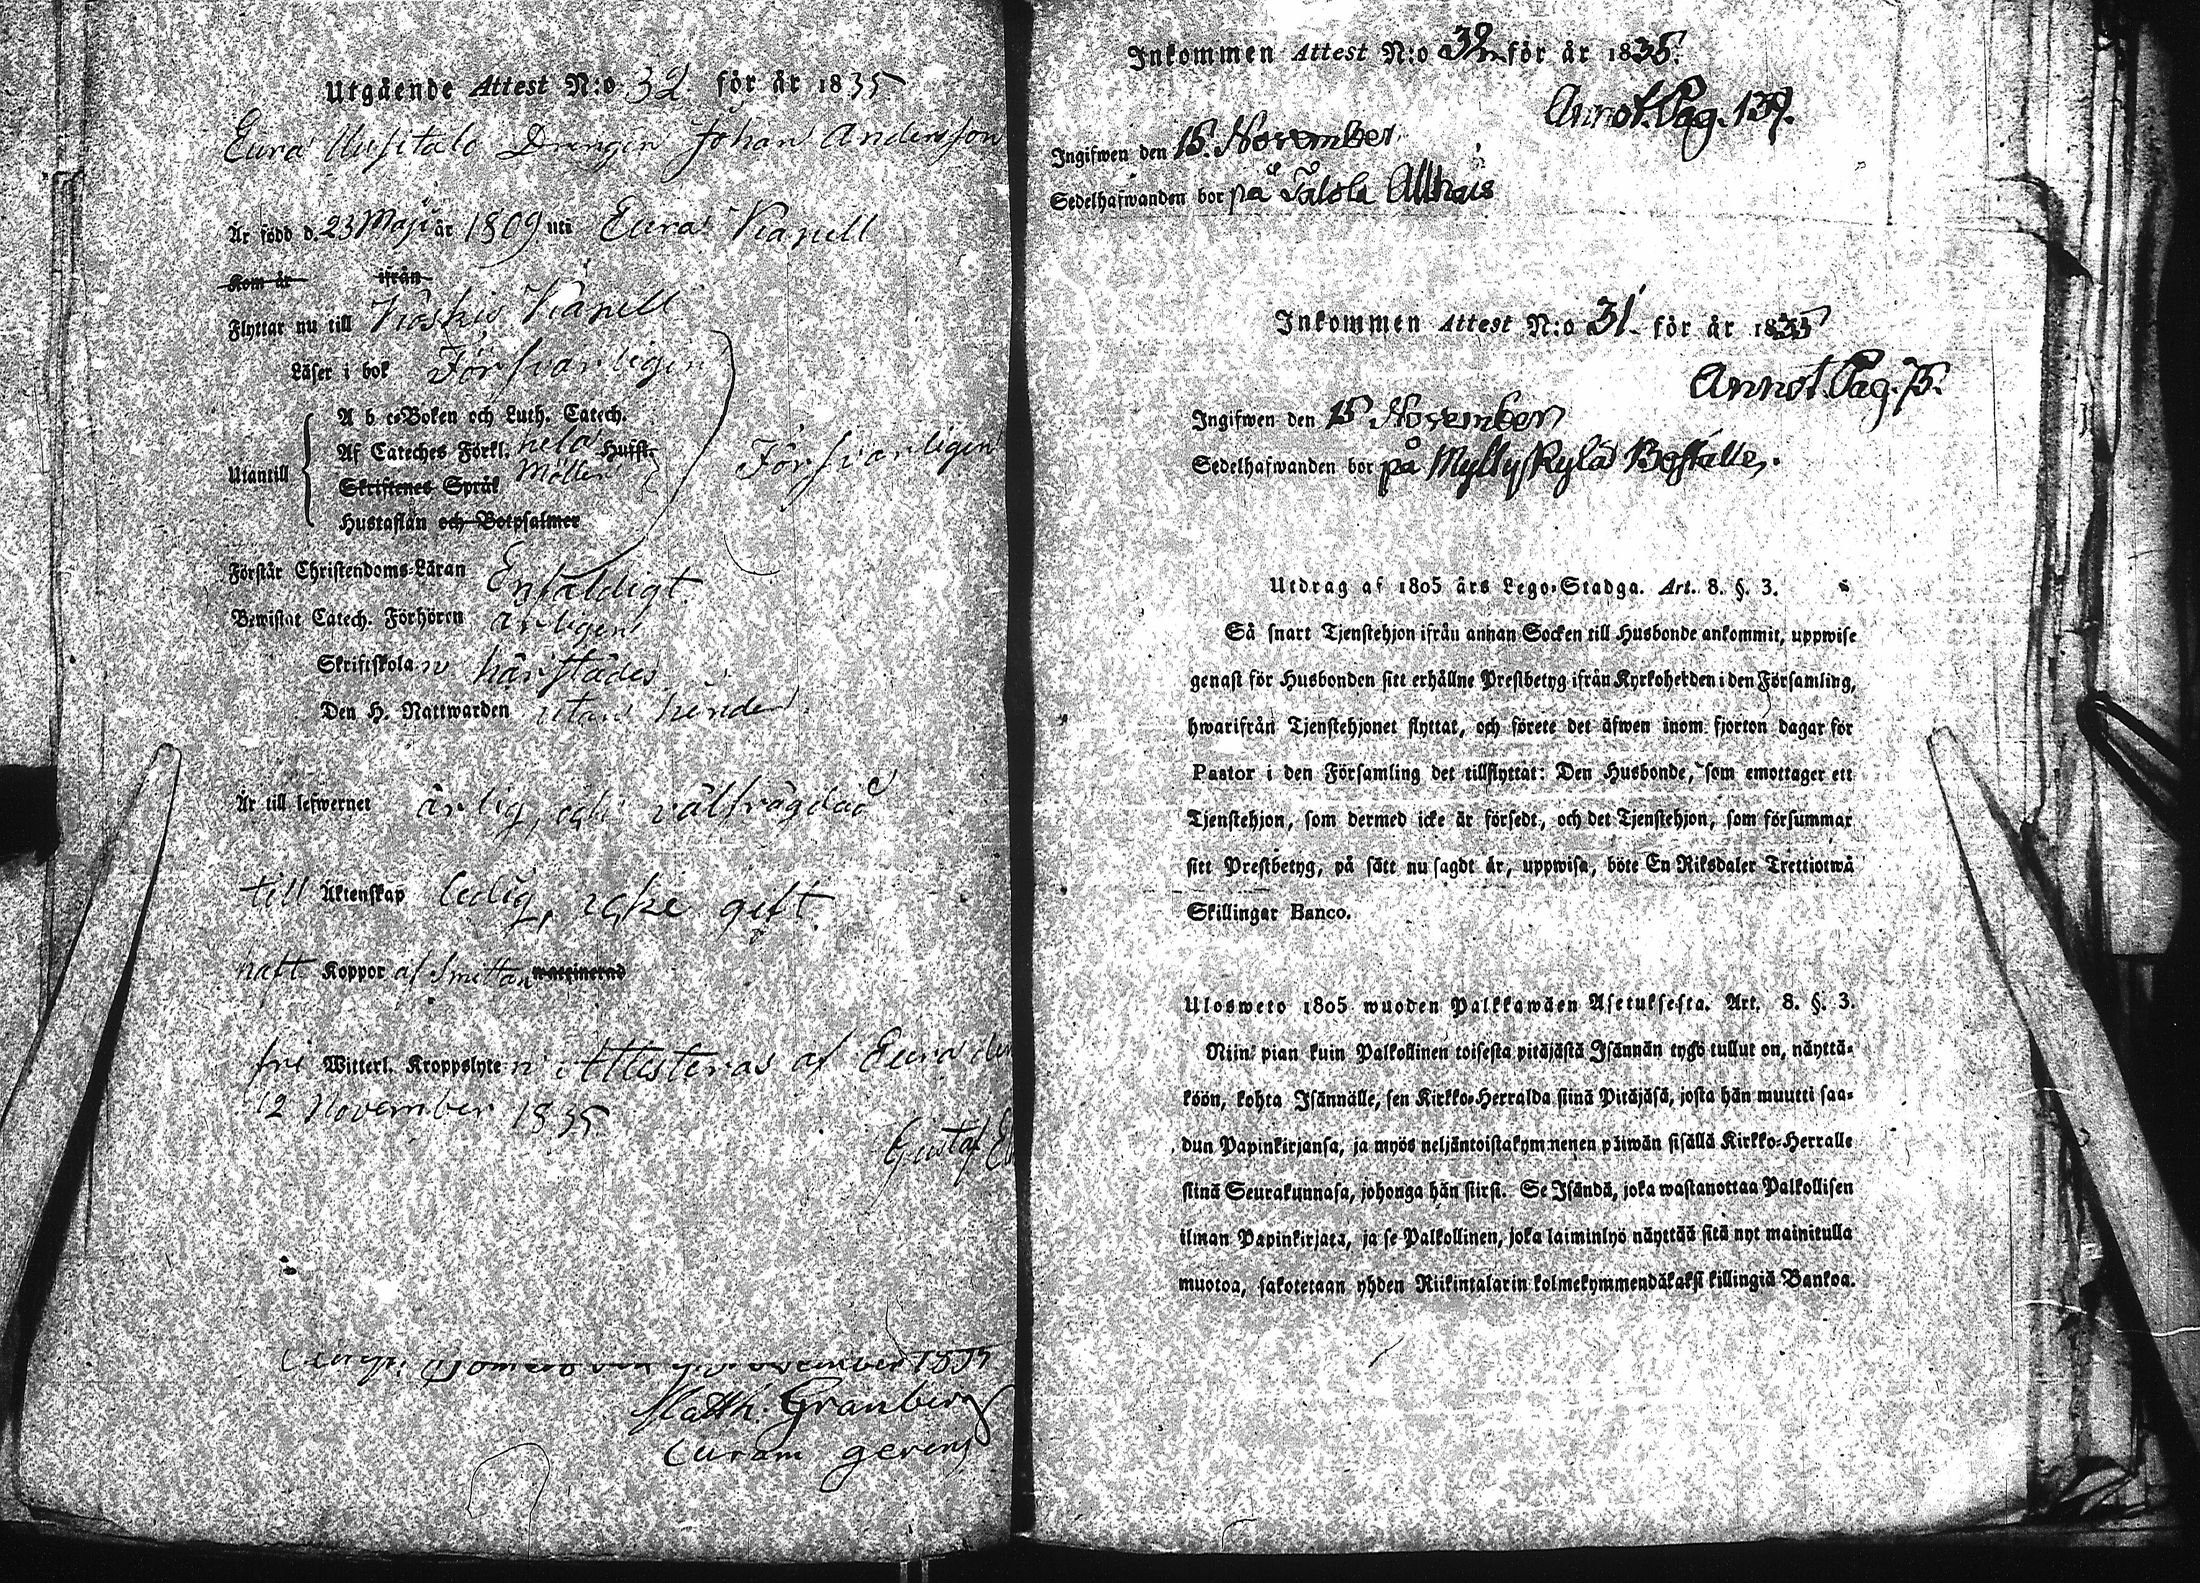 Utgående Attest N:o 32 för år 1835
Eura Drengen Johan Andersson
Är född d. 23 Maji år 1809 uti Eura Kapell
Kom år ifrån
Flyttar nu till Kapell
Läser i bok Försvarligen
A b c-Boken och Luth. Catech.
Utantill Af Cateches Förkl. hela Hufst.
Skriftenes Språk Möllers Försvarligen
Hustaflan och Botpsalmer
Förstår Christendoms-Läran Enfaldigt
Bewistat Catech. Förhören årligen
Skriftskolan härstädes
Den H. Nattwarden utan hinder
Är till lefwernet ärlig, och välfrägdad
till Äktenskap ledig, icke gift
haft Koppor af Smittan waccinerad
fri Witterl. Kroppslyten Attesteras af Eura den
12 November 1835
Gustaf
November 1835
Matth. Granberg
Curam gerens
Inkommen Attest N:o 32 för år 1835.
Annot. Pag. 137.
Ingifwen den 15. November
Sedelhafwanden bor på Talola Allhais
Inkommen Attest N:o 31 för år 1835
Annot. Pag. 75.
Ingifwen den 15 November
Sedelhafwanden bor på Myllykylä Boställe.
Utdrag af 1805 års Lego-Stadga. Art. 8. §. 3.
Så snart Tjenstehjon ifrån annan Socken till Husbonde ankommit, uppwise
genast för Husbonden sitt erhållne Prestbetyg ifrån Kyrkoherden i den Församling,
hwarifrån Tjenstehjonet flyttat, och förete det äfwen inom fjorton dagar för
Pastor i den Församling det tillflyttat: Den Husbonde, som emottager ett
Tjenstehjon, som dermed icke är försedt, och det Tjenstehjon, som försummar
sitt Prestbetyg, på sätt nu sagdt är, uppwisa, böte En Riksdaler Trettiotwå
Skillingar Banco.
Ulosweto 1805 wuoden Palkkawäen Asetuksesta. Art. 8. §. 3.
Niin pian kuin Palkollinen toisesta pitäjästä Isännän tygö tullut on, näyttä-
köön, kohta Isännälle, sen Kirkko-Herralda siinä Pitäjäsä, josta hän muutti saa-
dun Papinkirjansa, ja myös neljäntoistakymmenen päiwän sisällä Kirkko-Herralle
siinä Seurakunnasa, johonga hän siirsi. Se Isändä, joka wastanottaa Palkollisen
ilman Papinkirjata, ja se Palkollinen, joka laiminlyö näyttää sitä nyt mainitulla
muotoa, sakotetaan yhden Riikintalarin kolmekymmendäkaksi killingiä Bankoa.